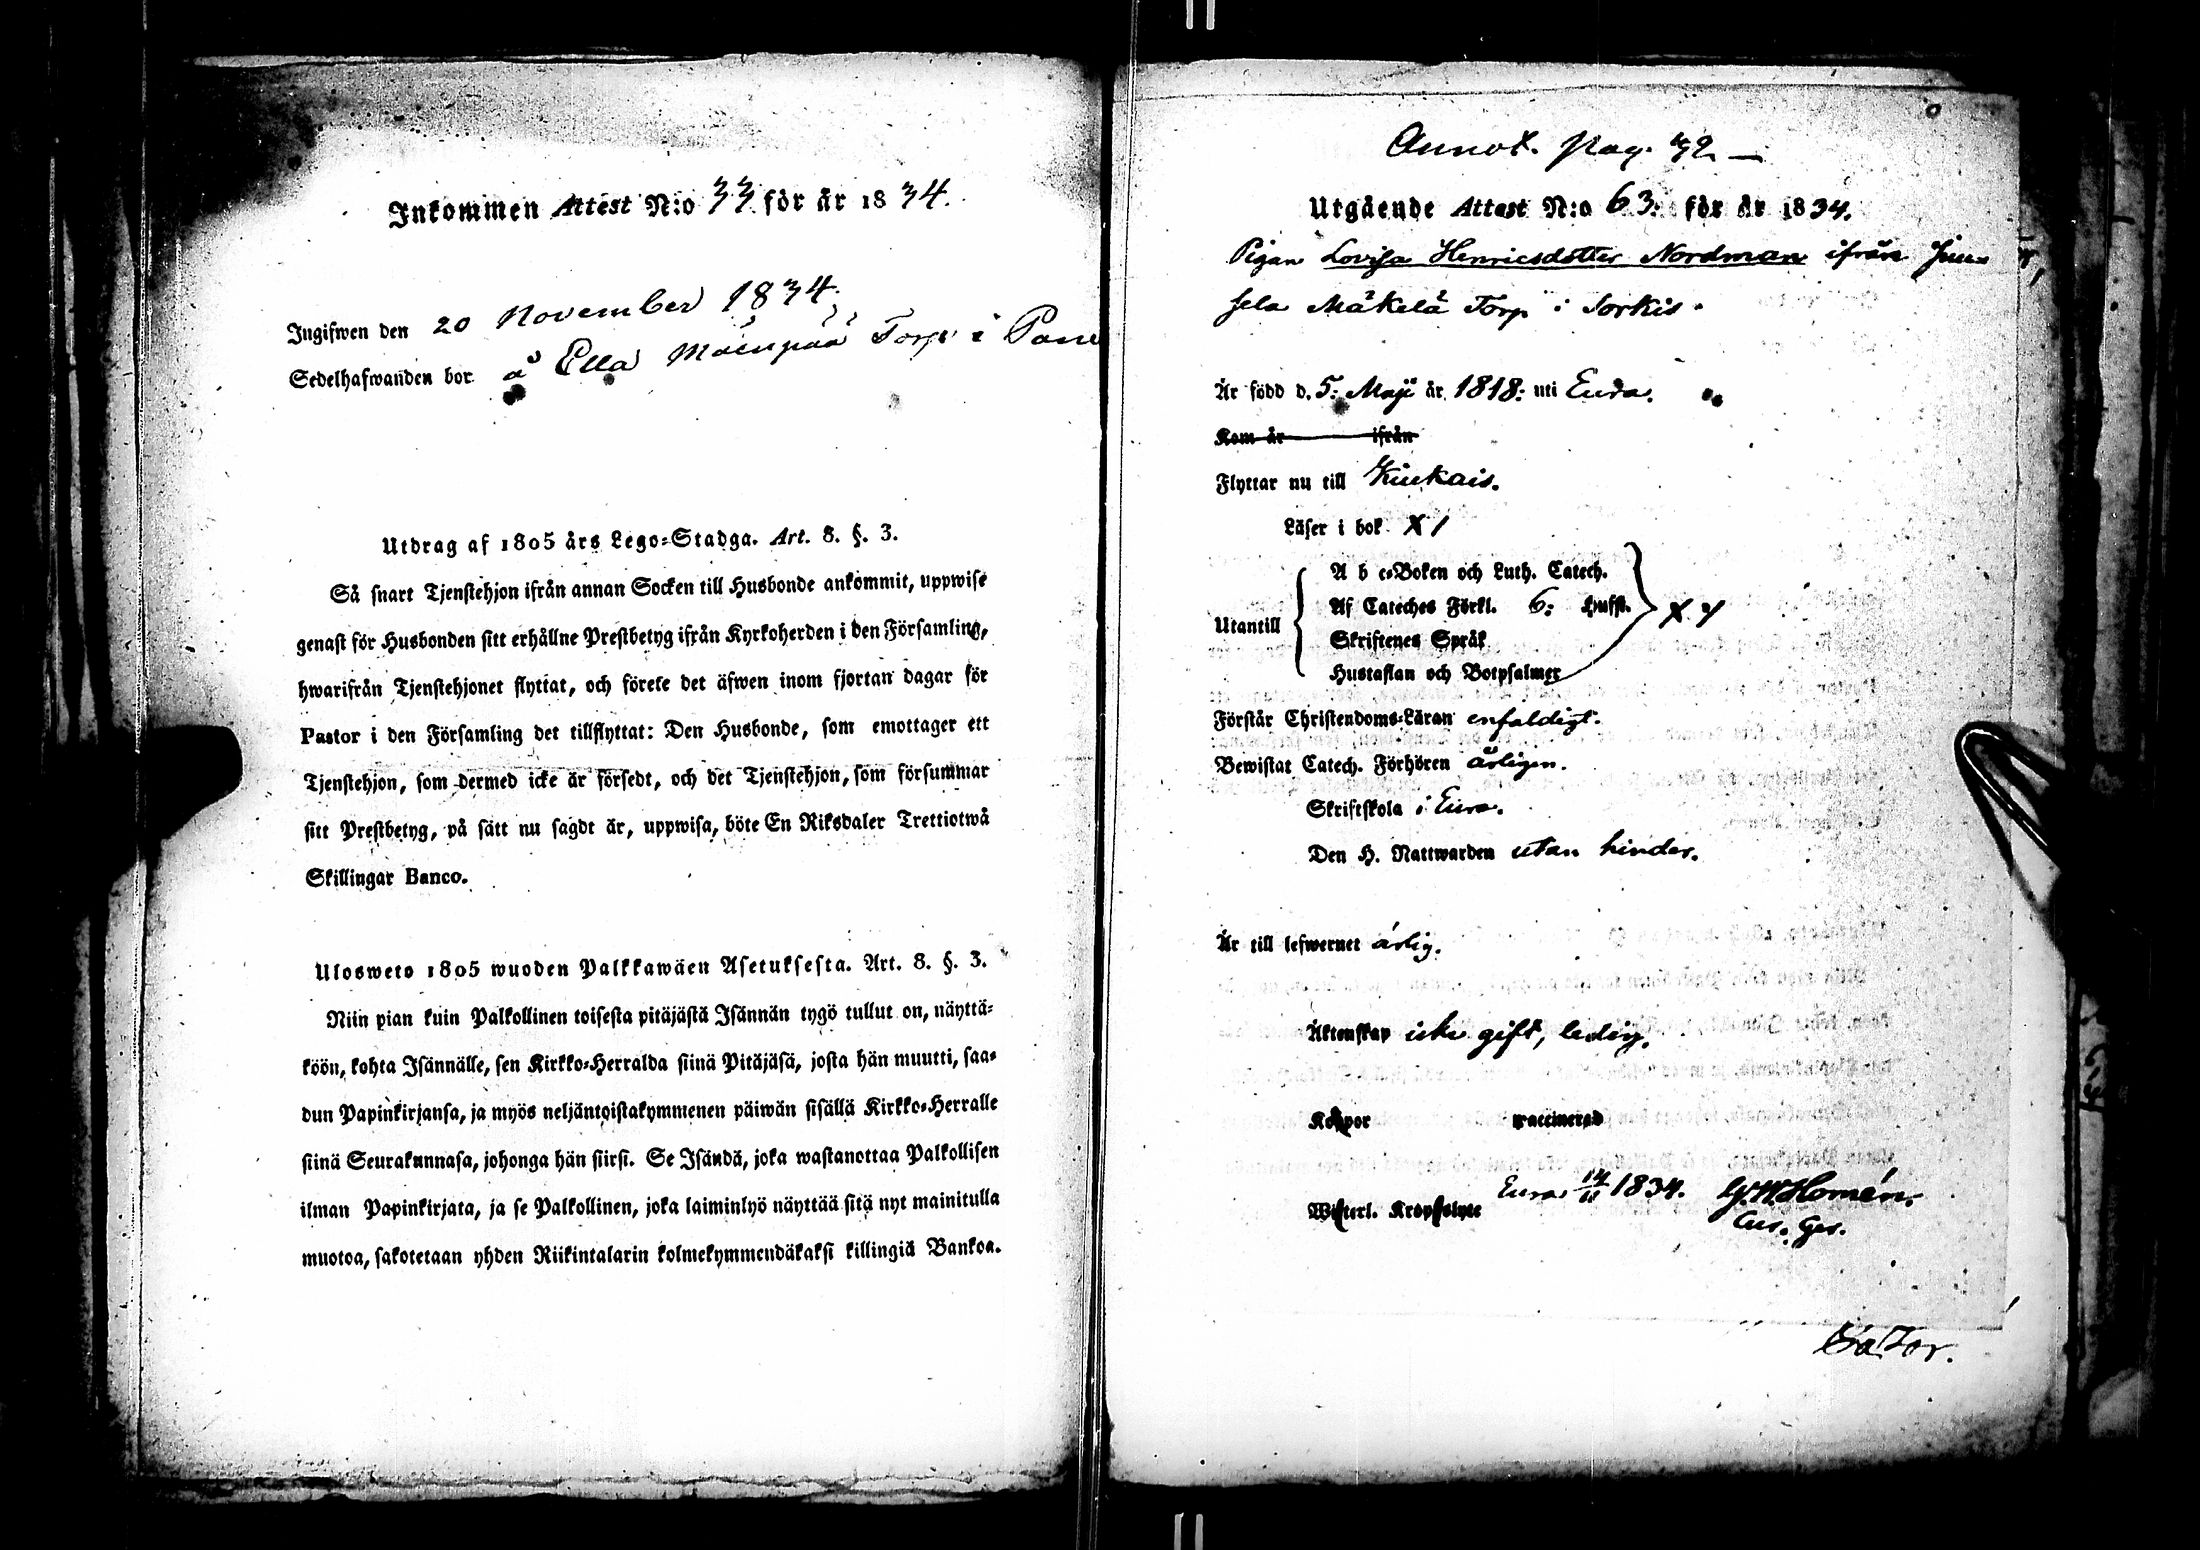 Inkommen Attest N:o 33 för år 1834.
Ingifwen den 20 November 1834.
Sedelhafwanden bor å Ella Mäenpää Torp i Pane
Utdrag af 1805 års Lego=Stadga. Art. 8. §. 3.
Så snart Tjenstehjon ifrån annan Socken till Husbonde ankommit, uppwise
genast för Husbonden sitt erhållne Prestbetyg ifrån Kyrkoherden i den Församling,
hwarifrån Tjenstehjonet flyttat, och förete det äfwen inom fjortan dagar för
Pastor i den Församling det tillflyttat: Den Husbonde, som emottager ett
Tjenstehjon, som dermed icke är försedt, och det Tjenstehjon, som försummar
sitt Prestbetyg, på sätt nu sagdt är, uppwisa, böte En Riksdaler Trettiotwå
Skillingar Banco.
Ulosweto 1805 wuoden Palkkawäen Asetuksesta. Art. 8. §. 3.
Niin pian kuin Palkollinen toisesta pitäjästä Isännän tygö tullut on, näyttä=
köön, kohta Isännälle, sen Kirkko=Herralda siinä Pitäjäsä, josta hän muutti, saa=
dun Papinkirjansa, ja myös neljäntoistakymmenen päiwän sisällä Kirkko=Herralle
siinä Seurakunnasa, johonga hän siirsi. Se Isändä, joka wastanottaa Palkollisen
ilman Papinkirjata, ja se Palkollinen, joka laiminlyö näyttää sitä nyt mainitulla
muotoa, sakotetaan yhden Riikintalarin kolmekymmendäkaksi killingiä Bankoa.
Annot. pag. 92
Utgående Attest N:o 63. för år 1834.
Pigan Lovisa Henricsdotter Nordman ifrån Juu=
sela Mäkelä Torp i Sorkis.
Är född d. 5: Maji år 1818: uti Eura.
Kom år ifrån
Flyttar nu till Kiukais.
Läser i bok X /
A b c=Boken och Luth. Catech.
Af Cateches Förkl. 6: Hufst. X y
Utantill
Skriftenes Språk
Hustaflan och Botpsalmer
Förstår Christendoms=Läran enfaldigt.
Bewistat Catech. Förhören årligen.
Skriftskola i Eura.
Den H. Nattwarden utan hinder.
Är till lefwernet ärlig.
Äktenskap icke gift, ledig.
Koppor waccinerad
Eura 14/11 1834. G. W. Homén.
Wisterl. Kropslyte
Cus. Ges.